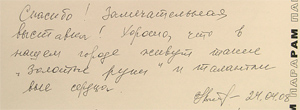 Спасибо! Замечательная
выставка! Хорошо, что в
нашем городе живут такие
"Золотые руки" и талантли-
вые сердца.
24.04.08
ПАРАРАМ ПА